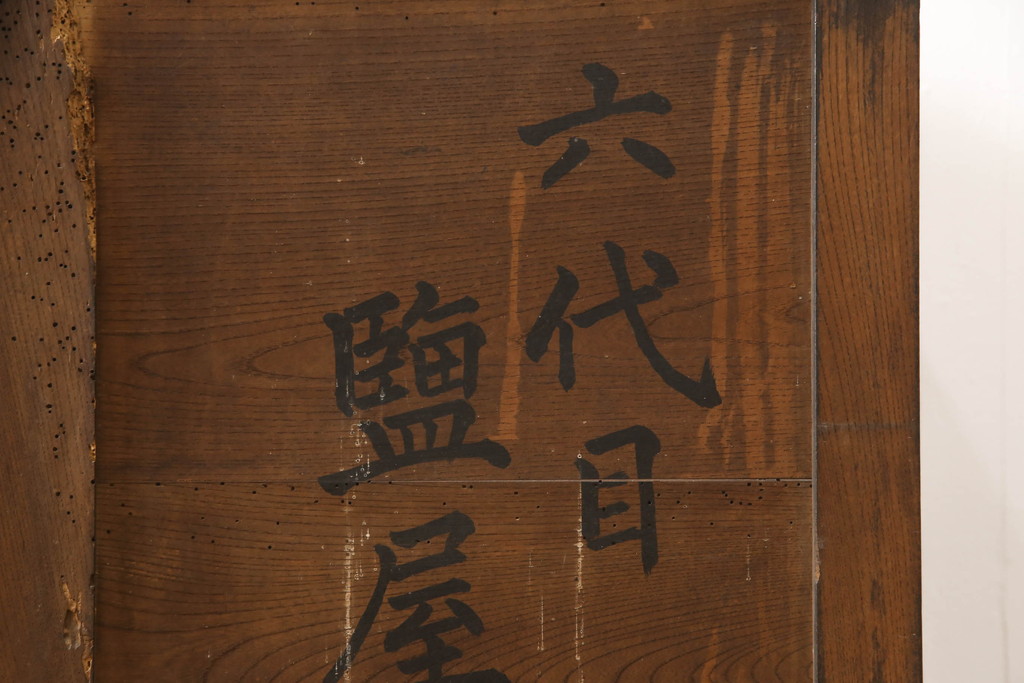 六代目
鹽屋